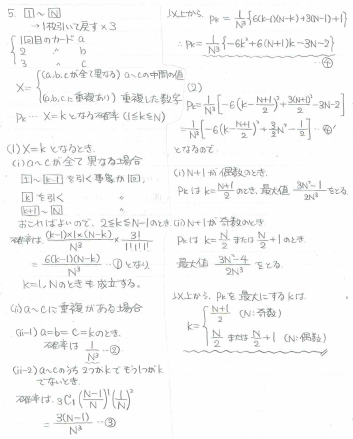 5. [1]～[N]
→1枚引いて戻す×3
1回目のカード a
2 〃 b
3 〃 c
X= { (a,b,cが全て異なる) a~cの中間の値
(a,b,cに重複あり) 重複した数字
Pk… X=kとなる確率 (1≤k≤N)
(1) X=kとなるとき.
(i) a~cが全て異なる場合
[1]~[k-1]を引く事象が1回,
[k]を引く 〃
[k+1]~[N] 〃
おこればよいので, 2≤k≤N-1のとき,
確率は (k-1)×1×(N-k)/N³ × 3!/1!1!1!
= 6(k-1)(N-k)/N³ …① となり
k=1, Nのときも成立する。
(ii) a~cに重複がある場合
(ii-1) a=b=c=kのとき.
確率は 1/N³ …②
(ii-2) a~cのうち2つがkでもう1つがk
でないとき.
確率は. ₃C₁ (N-1/N)¹ (1/N)²
= 3(N-1)/N³ …③
以上から Pk = 1/N³ {6(k-1)(N-k)+3(N-1)+1}
∴ Pk = 1/N³ {-6k²+6(N+1)k-3N-2}
④
(2)
Pk = 1/N³ [-6(k-N+1/2)²+3(N+1)²/2-3N-2]
= 1/N³ [-6(k-N+1/2)²+3/2N²-1/2] …④'
となるので.
(i) N+1が偶数のとき.
Pkは k=N+1/2 のとき, 最大値 3N²-1/2N³ をとる
(ii) N+1が奇数のとき
Pkは k=N/2 または N/2+1 のとき.
最大値 3N²-4/2N³ をとる。
以上から, Pkを最大にするkは.
k= { N+1/2 (N:奇数)
N/2 または N/2+1 (N:偶数)